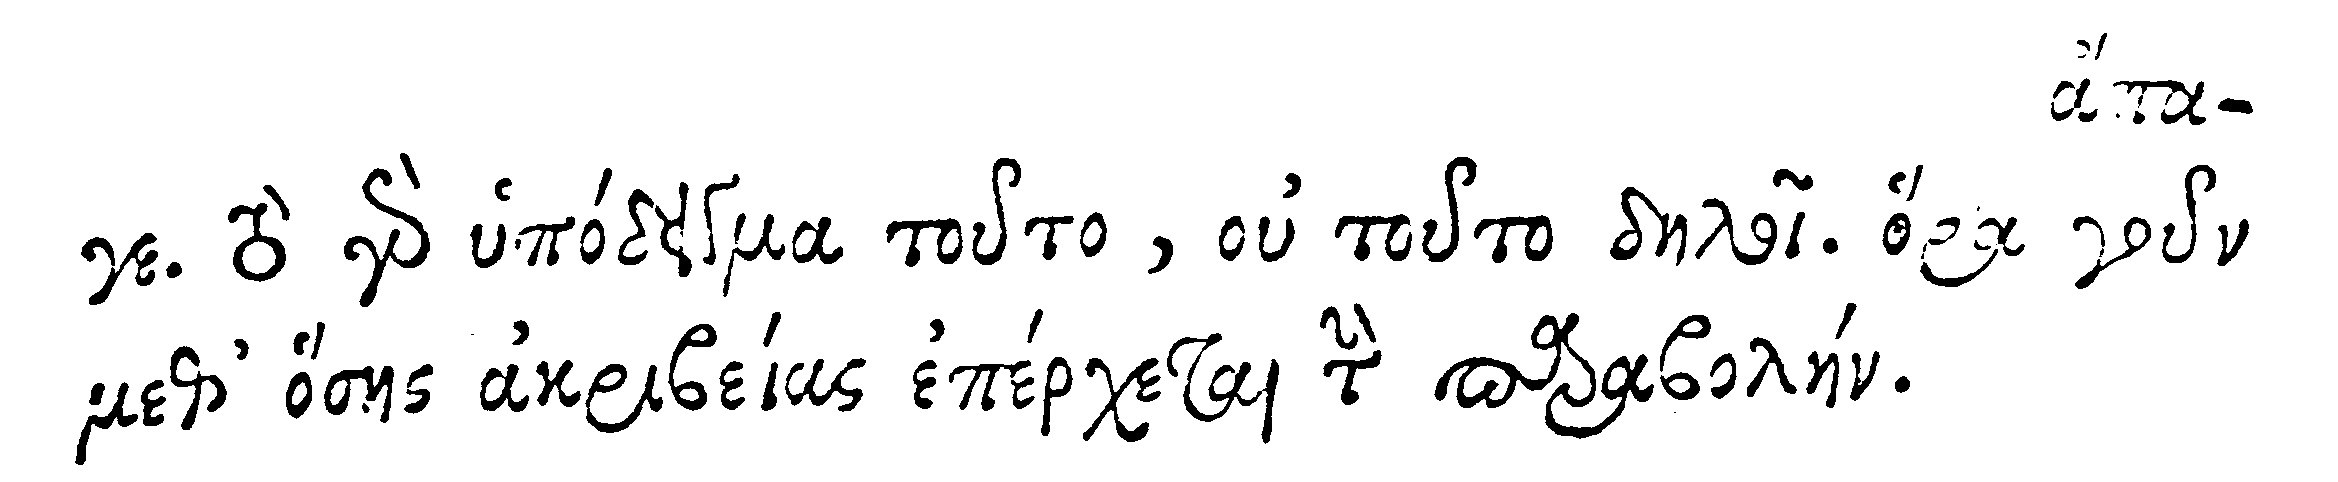 ἄπα-
γε. τὸ γὰρ ὑπόδειγμα τοῦτο, οὐ τοῦτο δηλοῖ. ὅρα γοῦν
μεθ' ὅσης ἀκριβείας ἐπέρχεται τὴν παραβολήν.